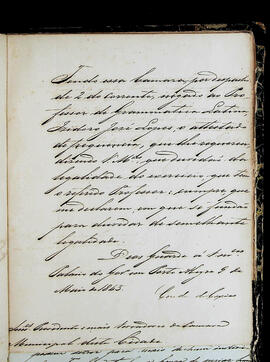 Tendo essa Camara, por despacho
de 2 do corrente, negado ao Pro-
fessor de Grammatica Latina,
Izidoro José Lopes, o attestado
de frequencia, que lhe requereu
dizendo V. Mces. que duvidão da
legalidade do exercicio, que tem
o referido Professor; cumpre que
me declarem, em que se fundão
para duvidar de semelhante
legalidade.
Deos Guarde a V. Mces.
Palacio do Gov. em Porto Alegre 9 de
Maio de 1843.
Conde de Caxias
Senrs. Presidente e mais Vereadores da Camara
Municipal desta Cidade